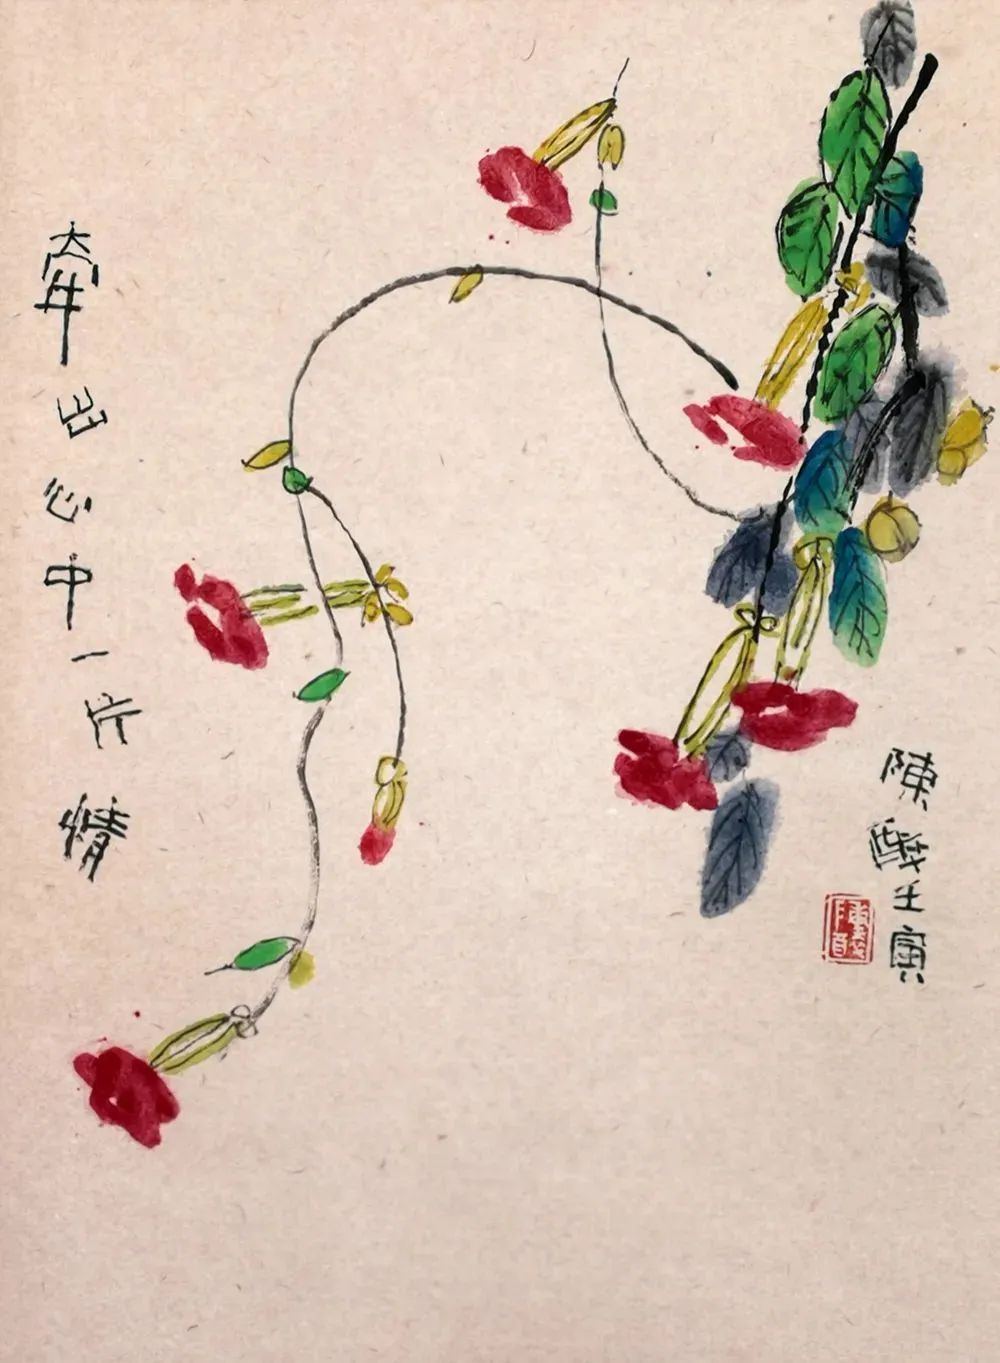 陳醉壬寅
牵出心中一片情